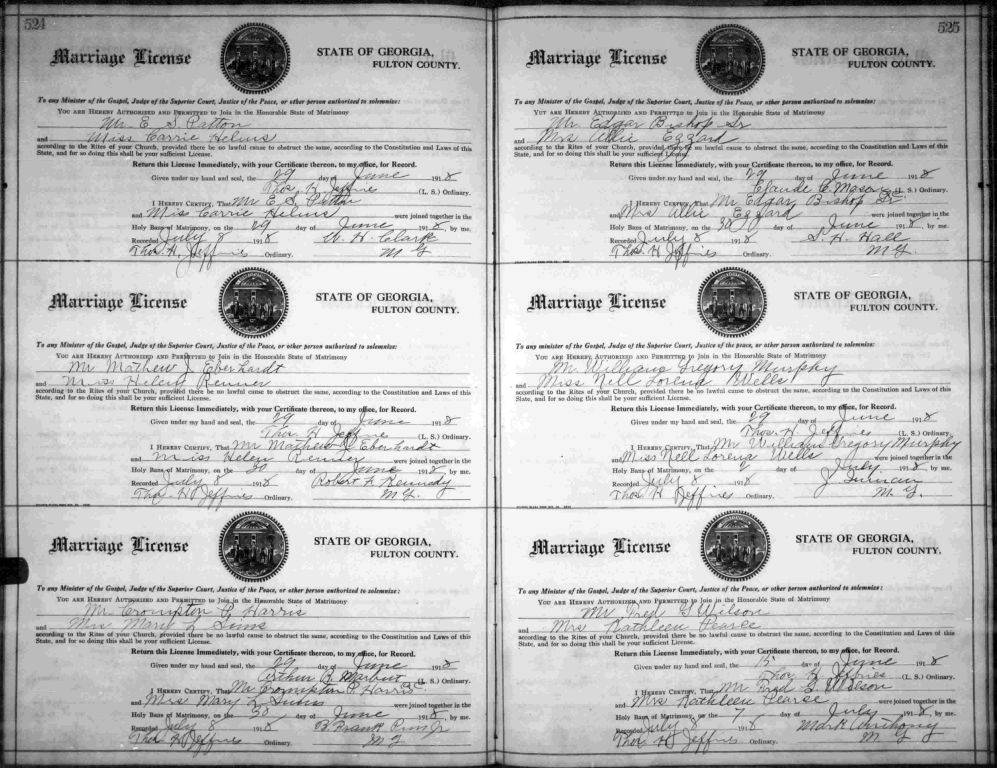 524
Marriage License
STATE OF GEORGIA,
FULTON COUNTY.
To any Minister of the Gospel, Judge of the Superior Court, Justice of the Peace, or other person authorized to solemnize:
YOU ARE HEREBY AUTHORIZED AND PERMITTED to Join in the Honorable State of Matrimony
Mr. E. S. Patton
and Miss Carrie Helms
according to the Rites of your Church, provided there be no lawful cause to obstruct the same, according to the Constitution and Laws of this
State, and for so doing this shall be your sufficient License.
Return this License Immediately, with your Certificate thereon, to my office, for Record.
Given under my hand and seal, the 29 day of June 1918
Thos. H. Jeffries (L. S.) Ordinary.
I HEREBY CERTIFY, That Mr E. S. Patton
and Miss Carrie Helms were joined together in the
Holy Bans of Matrimony, on the 29 day of June 1918, by me.
Recorded July 8 1918 W. H. Clark
Thos. H. Jeffries Ordinary. M G
Marriage License
STATE OF GEORGIA,
FULTON COUNTY.
To any Minister of the Gospel, Judge of the Superior Court, Justice of the Peace, or other person authorized to solemnize:
YOU ARE HEREBY AUTHORIZED AND PERMITTED to Join in the Honorable State of Matrimony
Mr Mathew J. Eberhardt
and Miss Helen Renner
according to the Rites of your Church, provided there be no lawful cause to obstruct the same, according to the Constitution and Laws of this
State, and for so doing this shall be your sufficient License.
Return this License Immediately, with your Certificate thereon, to my office, for Record.
Given under my hand and seal, the 29 day of June 1918
Thos. H. Jeffries (L. S.) Ordinary.
I HEREBY CERTIFY, That Mr Mathew J. Eberhardt
and Miss Helen Renner were joined together in the
Holy Bans of Matrimony, on the 30 day of June 1918, by me.
Recorded July 8 1918 Robert F. Kennedy
Thos. H. Jeffries Ordinary. M. G.
Marriage License
STATE OF GEORGIA,
FULTON COUNTY.
To any Minister of the Gospel, Judge of the Superior Court, Justice of the Peace, or other person authorized to solemnize:
YOU ARE HEREBY AUTHORIZED AND PERMITTED to Join in the Honorable State of Matrimony
Mr Crompton P. Harris
and Mrs Mary L Sims
according to the Rites of your Church, provided there be no lawful cause to obstruct the same, according to the Constitution and Laws of this
State, and for so doing this shall be your sufficient License.
Return this License Immediately, with your Certificate thereon, to my office, for Record.
Given under my hand and seal, the 29 day of June 1918
Arthur R. Marbut (L. S.) Ordinary.
I HEREBY CERTIFY, That Mr Crompton P. Harris
and Mrs Mary L Sims were joined together in the
Holy Bans of Matrimony, on the 30 day of June 1918, by me.
Recorded July 8 1918 B. Frank Pim Jr
Thos H Jeffries Ordinary. M G
525
Marriage License
STATE OF GEORGIA,
FULTON COUNTY.
To any Minister of the Gospel, Judge of the Superior Court, Justice of the Peace, or other person authorized to solemnize:
YUT ARE HEREBY AUTHORIZED AND PERMITTED to Join in the Honorable State of Matrimony
Mr. Edgar Bishop Sr
and Mrs Allie Ezzard
according to the Rites of your Church, provided there be no lawful cause to obstruct the same, according to the Constitution and Laws of this
State, and for so doing this shall be your sufficient License.
Return this License Immediately, with your Certificate thereon, to my office, for Record.
Given under my hand and seal, the 29 day of June 1918
Claude C. Mason (L. S.) Ordinary.
I HEREBY CERTIFY, That Mr Edgar Bishop Sr
and Mrs Allie Ezzard were joined together in the
Holy Bans of Matrimony, on the 30 day of June 1918, by me.
Recorded July 8 1918 S. H. Hall
Thos. H. Jeffries Ordinary. M.G.
Marriage License
STATE OF GEORGIA,
FULTON COUNTY.
To any minister of the Gospel, Judge of the Superior Court, Justice of the peace, or other person authorized to solemnize:
YOU ARE HEREBY AUTHORIZED AND PERMITTED to Join in the Honorable State of Matrimony
Mr William Gregory Murphy
and Miss Nell Lorena Wells
according to the Rites of your Church, provided there be no lawful cause to obstruct the same, according to the Constitution and Laws of this
State, and for so doing this shall be your sufficient License.
Return this License Immediately, with your Certificate thereon, to my office, for Record.
Given under my hand and seal, the 29 day of June 1918
Thos. H Jeffries (L. S.) Ordinary.
I HEREBY CERTIFY, That Mr William Gregory Murphy
and Miss Nell Lorena Wells were joined together in the
Holy Bans of Matrimony, on the day of July 1918, by me.
Recorded July 8 1918 J.
Thos H Jeffries Ordinary. M. G.
Marriage License
STATE OF GEORGIA,
FULTON COUNTY.
To any Minister of the Gospel, Judge of the Superior Court, Justice of the Peace, or other person authorized to solemnize:
YOU ARE HEREBY AUTHORIZED AND PERMITTED to Join in the Honorable State of Matrimony
Mr Fred G Wilson
and Mrs Kathleen Pearce
according to the Rites of your Church, provided there be no lawful cause to obstruct the same, according to the Constitution and Laws of this
State, and for so doing this shall be your sufficient License.
Return this License Immediately, with your Certificate thereon, to my office, for Record.
Given under my hand and seal, the 15 day of June 1918
Thos H Jeffries (L. S.) Ordinary.
I HEREBY CERTIFY, That Mr Fred G. Wilson
and Mrs Kathleen Pearce were joined together in the
Holy Bans of Matrimony, on the 7 day of July 1918, by me.
Recorded July 8 1918 Mark
Thos H Jeffries Ordinary. M G